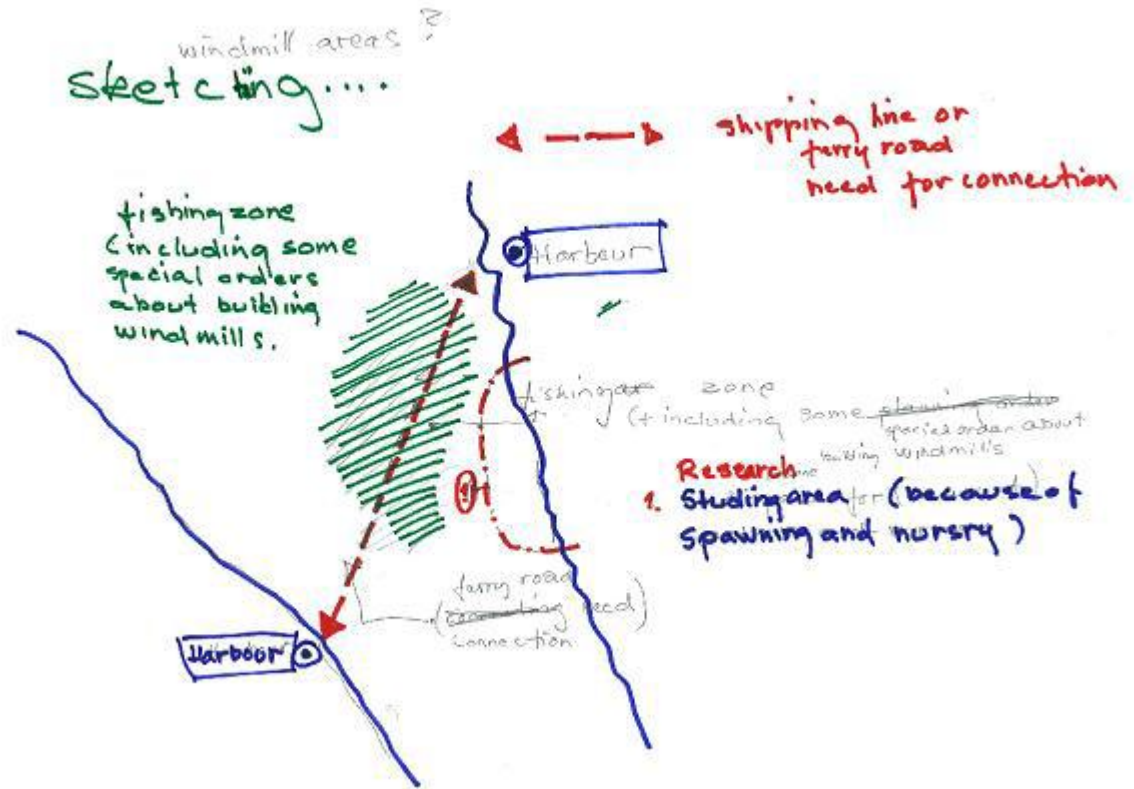 windmill areas ?
Sketching....
shipping line or
ferry road
need for connection
fishing zone
(including some
special orders
about building
windmills.
Harbour
fishing zone
(+ including some
special order about
building windmills
Research
1. Studing area (because of
spawning and nursry)
ferry road
need)
connection
Harbour